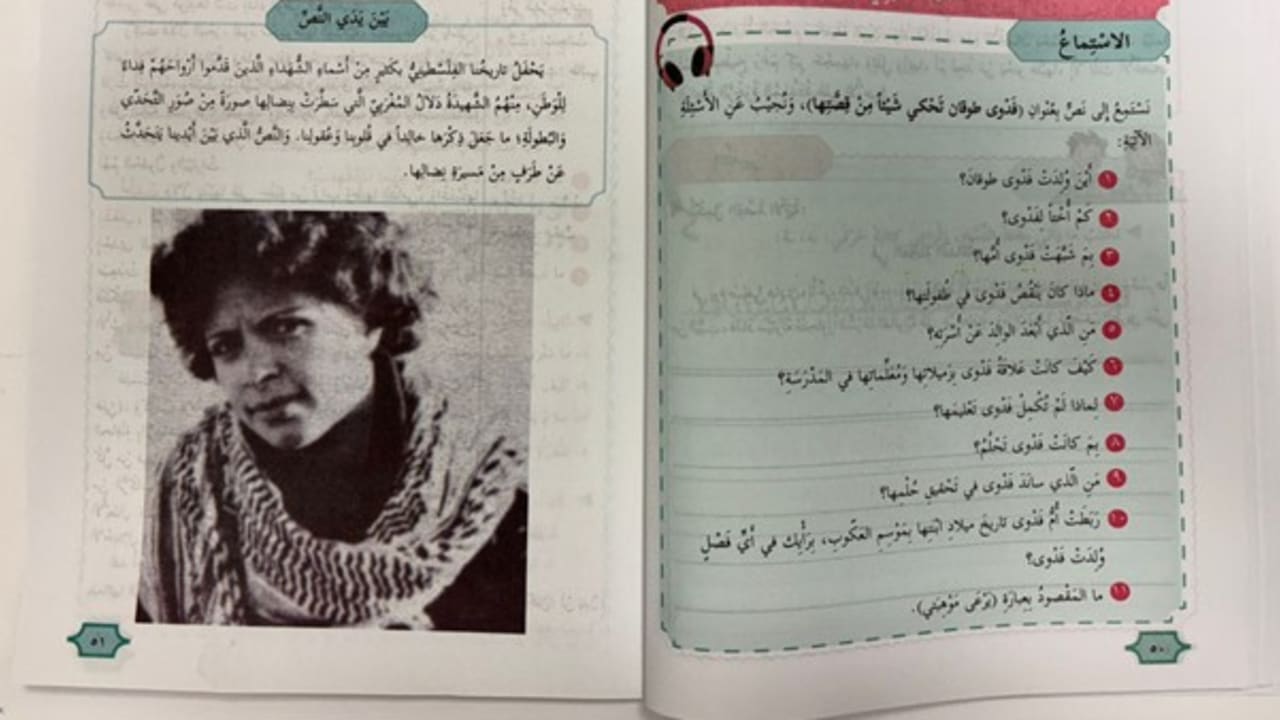 الاسْتِماعُ
نَسْتَمِعُ إِلى نَصٍّ بِعُنْوانِ (فَدْوى طوقان تَحْكي شَيْئاً مِنْ قِصَّتِها)، وَنُجيبُ عَنِ الأَسْئِلَةِ
الآتِيَةِ:
١ أَيْنَ وُلِدَتْ فَدْوى طوقان؟
٢ كَمْ أُخْتاً لِفَدْوى؟
٣ بِمَ شَبَّهَتْ فَدْوى أُمَّها؟
٤ ماذا كانَ يَنْقُصُ فَدْوى في طُفولَتِها؟
٥ مَنِ الَّذي أَبْعَدَ الوالِدَ عَنْ أُسْرَتِهِ؟
٦ كَيْفَ كانَتْ عَلاقَةُ فَدْوى بِزَميلاتِها وَمُعَلِّماتِها في المَدْرَسَةِ؟
٧ لِماذا لَمْ تُكْمِلْ فَدْوى تَعْليمَها؟
٨ بِمَ كانَتْ فَدْوى تَحْلُمُ؟
٩ مَنِ الَّذي سانَدَ فَدْوى في تَحْقيقِ حُلْمِها؟
١٠ رَبَطَتْ أُمُّ فَدْوى تاريخَ ميلادِ ابْنَتِها بِمَوْسِمِ العَكّوبِ، بِرَأْيِك في أَيِّ فَصْلٍ
وُلِدَتْ فَدْوى؟
١١ ما المَقْصودُ بِعِبارَةِ (يَرْعى مَوْهِبَتي).
٥٠
بَيْنَ يَدَيِ النَّصِّ
يَحْفَلُ تاريخُنا الفِلَسْطينِيُّ بِكَثيرٍ مِنْ أَسْماءِ الشُّهَداءِ الَّذينَ قَدَّموا أَرْواحَهُمْ فِداءً
لِلْوَطَنِ، مِنْهُمُ الشَّهيدَةُ دَلالُ المُغْرَبِيّ الَّتي سَطَّرَتْ بِنِضالِها صورَةً مِنْ صُوَرِ التَّحَدّي
وَالبُطولَةِ؛ ما جَعَلَ ذِكْرَها خالِداً في قُلوبِنا وَعُقولِنا. وَالنَّصُّ الَّذي بَيْنَ أَيْدينا يَتَحَدَّثُ
عَنْ طَرَفٍ مِنْ مَسيرَةِ نِضالِها.
٥١